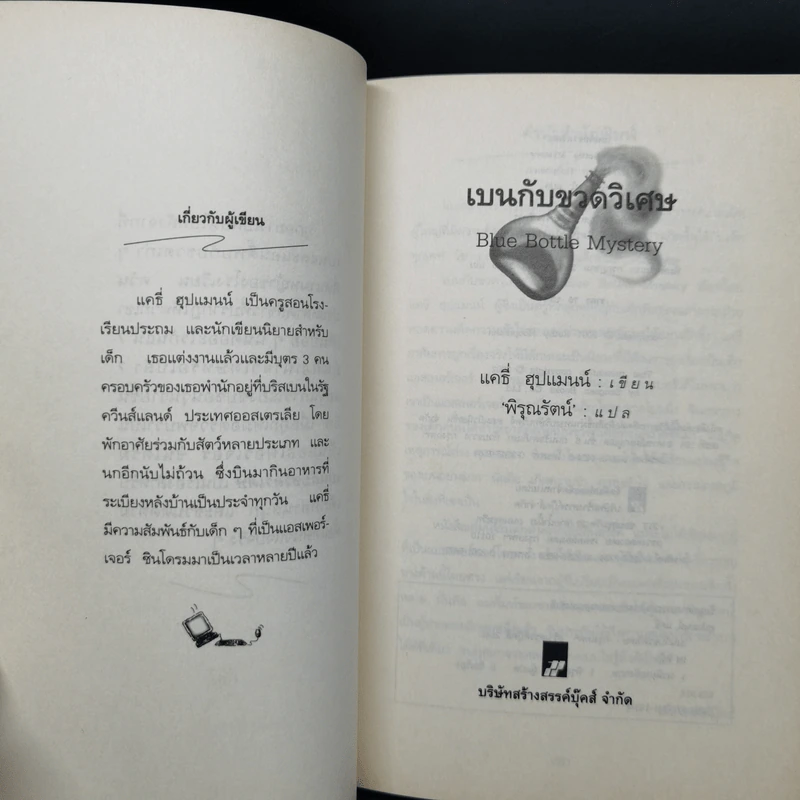 เกี่ยวกับผู้เขียน
แคธี่ ฮุปแมนน์ เป็นครูสอนโรง-
เรียนประถม และนักเขียนนิยายสำหรับ
เด็ก เธอแต่งงานแล้วและมีบุตร 3 คน
ครอบครัวของเธอพำนักอยู่ที่บริสเบนในรัฐ
ควีนส์แลนด์ ประเทศออสเตรเลีย โดย
พักอาศัยร่วมกับสัตว์หลายประเภท และ
นกอีกนับไม่ถ้วน ซึ่งบินมากินอาหารที่
ระเบียงหลังบ้านเป็นประจำทุกวัน แคธี่
มีความสัมพันธ์กับเด็ก ๆ ที่เป็นแอสเพอร์-
เจอร์ ซินโดรมมาเป็นเวลาหลายปีแล้ว
เบนกับขวดวิเศษ
Blue Bottle Mystery
แคธี่ ฮุปแมนน์ : เขียน
'พิรุณรัตน์' : แปล
บริษัทสร้างสรรค์บุ๊คส์ จำกัด